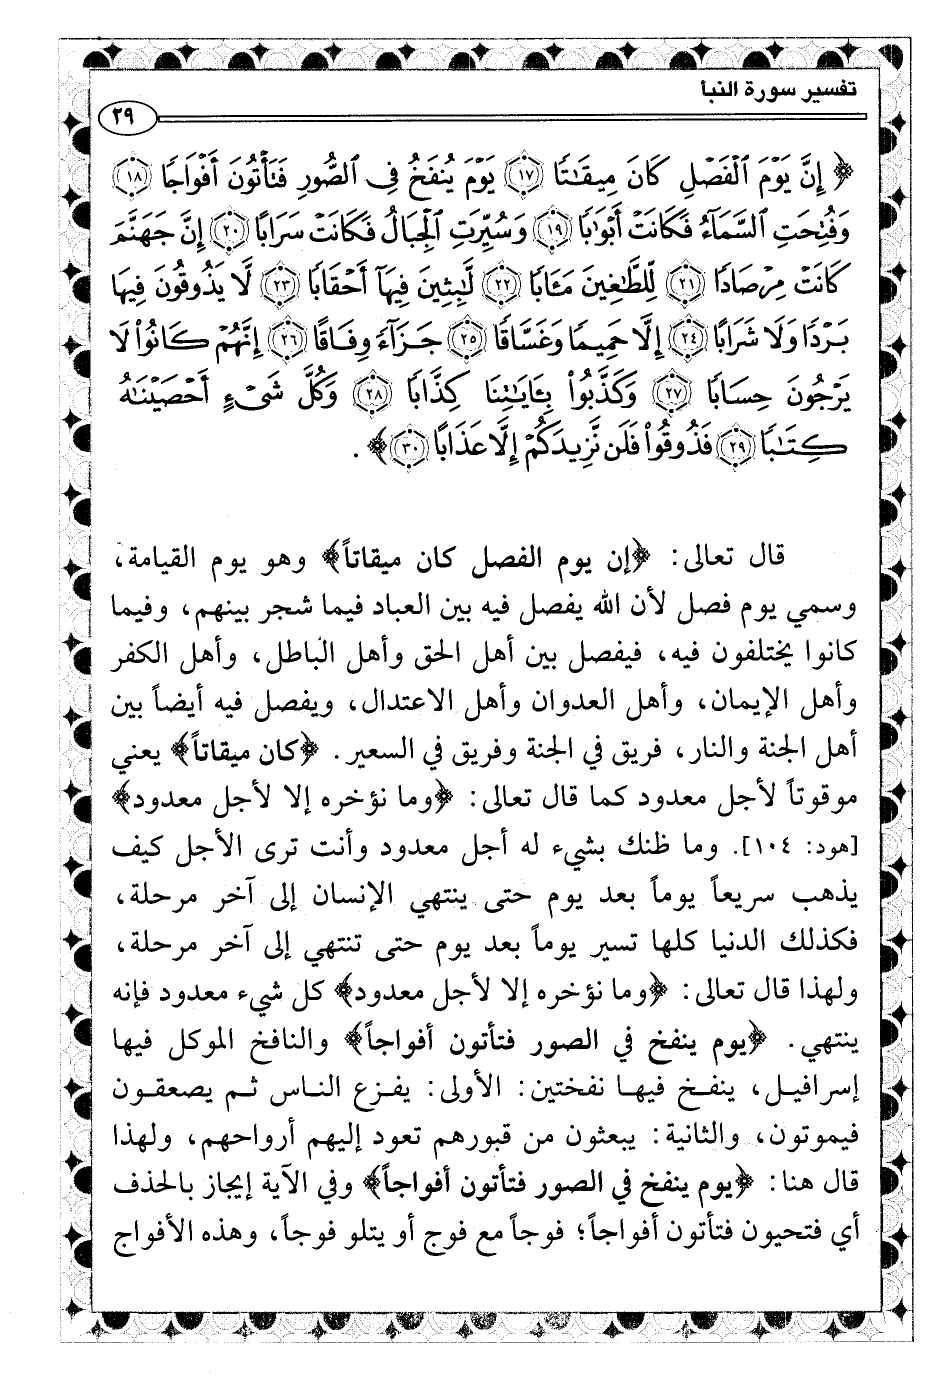 تفسير سورة النبأ
٢٩
﴿ إِنَّ يَوْمَ ٱلْفَصْلِ كَانَ مِيقَٰتًا ﴿١٧﴾ يَوْمَ يُنفَخُ فِى ٱلصُّورِ فَتَأْتُونَ أَفْوَاجًا ﴿١٨﴾
وَفُتِحَتِ ٱلسَّمَآءُ فَكَانَتْ أَبْوَٰبًا ﴿١٩﴾ وَسُيِّرَتِ ٱلْجِبَالُ فَكَانَتْ سَرَابًا ﴿٢٠﴾ إِنَّ جَهَنَّمَ
كَانَتْ مِرْصَادًا ﴿٢١﴾ لِّلطَّٰغِينَ مَـَٔابًا ﴿٢٢﴾ لَّٰبِثِينَ فِيهَآ أَحْقَابًا ﴿٢٣﴾ لَّا يَذُوقُونَ فِيهَا
بَرْدًا وَلَا شَرَابًا ﴿٢٤﴾ إِلَّا حَمِيمًا وَغَسَّاقًا ﴿٢٥﴾ جَزَآءً وِفَاقًا ﴿٢٦﴾ إِنَّهُمْ كَانُوا۟ لَا
يَرْجُونَ حِسَابًا ﴿٢٧﴾ وَكَذَّبُوا۟ بِـَٔايَٰتِنَا كِذَّابًا ﴿٢٨﴾ وَكُلَّ شَىْءٍ أَحْصَيْنَٰهُ
كِتَٰبًا ﴿٢٩﴾ فَذُوقُوا۟ فَلَن نَّزِيدَكُمْ إِلَّا عَذَابًا ﴿٣٠﴾﴾ .
قال تعالى: ﴿إن يوم الفصل كان ميقاتاً﴾ وهو يوم القيامة،
وسمي يوم فصل لأن الله يفصل فيه بين العباد فيما شجر بينهم، وفيما
كانوا يختلفون فيه، فيفصل بين أهل الحق وأهل الباطل، وأهل الكفر
وأهل الإيمان، وأهل العدوان وأهل الاعتدال، ويفصل فيه أيضاً بين
أهل الجنة والنار، فريق في الجنة وفريق في السعير. ﴿كان ميقاتاً﴾ يعني
موقوتاً لأجل معدود كما قال تعالى: ﴿وما نؤخره إلا لأجل معدود﴾
[هود: ١٠٤]. وما ظنك بشيء له أجل معدود وأنت ترى الأجل كيف
يذهب سريعاً يوماً بعد يوم حتى ينتهي الإنسان إلى آخر مرحلة،
فكذلك الدنيا كلها تسير يوماً بعد يوم حتى تنتهي إلى آخر مرحلة،
ولهذا قال تعالى: ﴿وما نؤخره إلا لأجل معدود﴾ كل شيء معدود فإنه
ينتهي. ﴿يوم ينفخ في الصور فتأتون أفواجاً﴾ والنافخ الموكل فيها
إسرافيل، ينفخ فيها نفختين: الأولى: يفزع الناس ثم يصعقون
فيموتون، والثانية: يبعثون من قبورهم تعود إليهم أرواحهم، ولهذا
قال هنا: ﴿يوم ينفخ في الصور فتأتون أفواجاً﴾ وفي الآية إيجاز بالحذف
أي فتحيون فتأتون أفواجاً؛ فوجاً مع فوج أو يتلو فوجاً، وهذه الأفواج